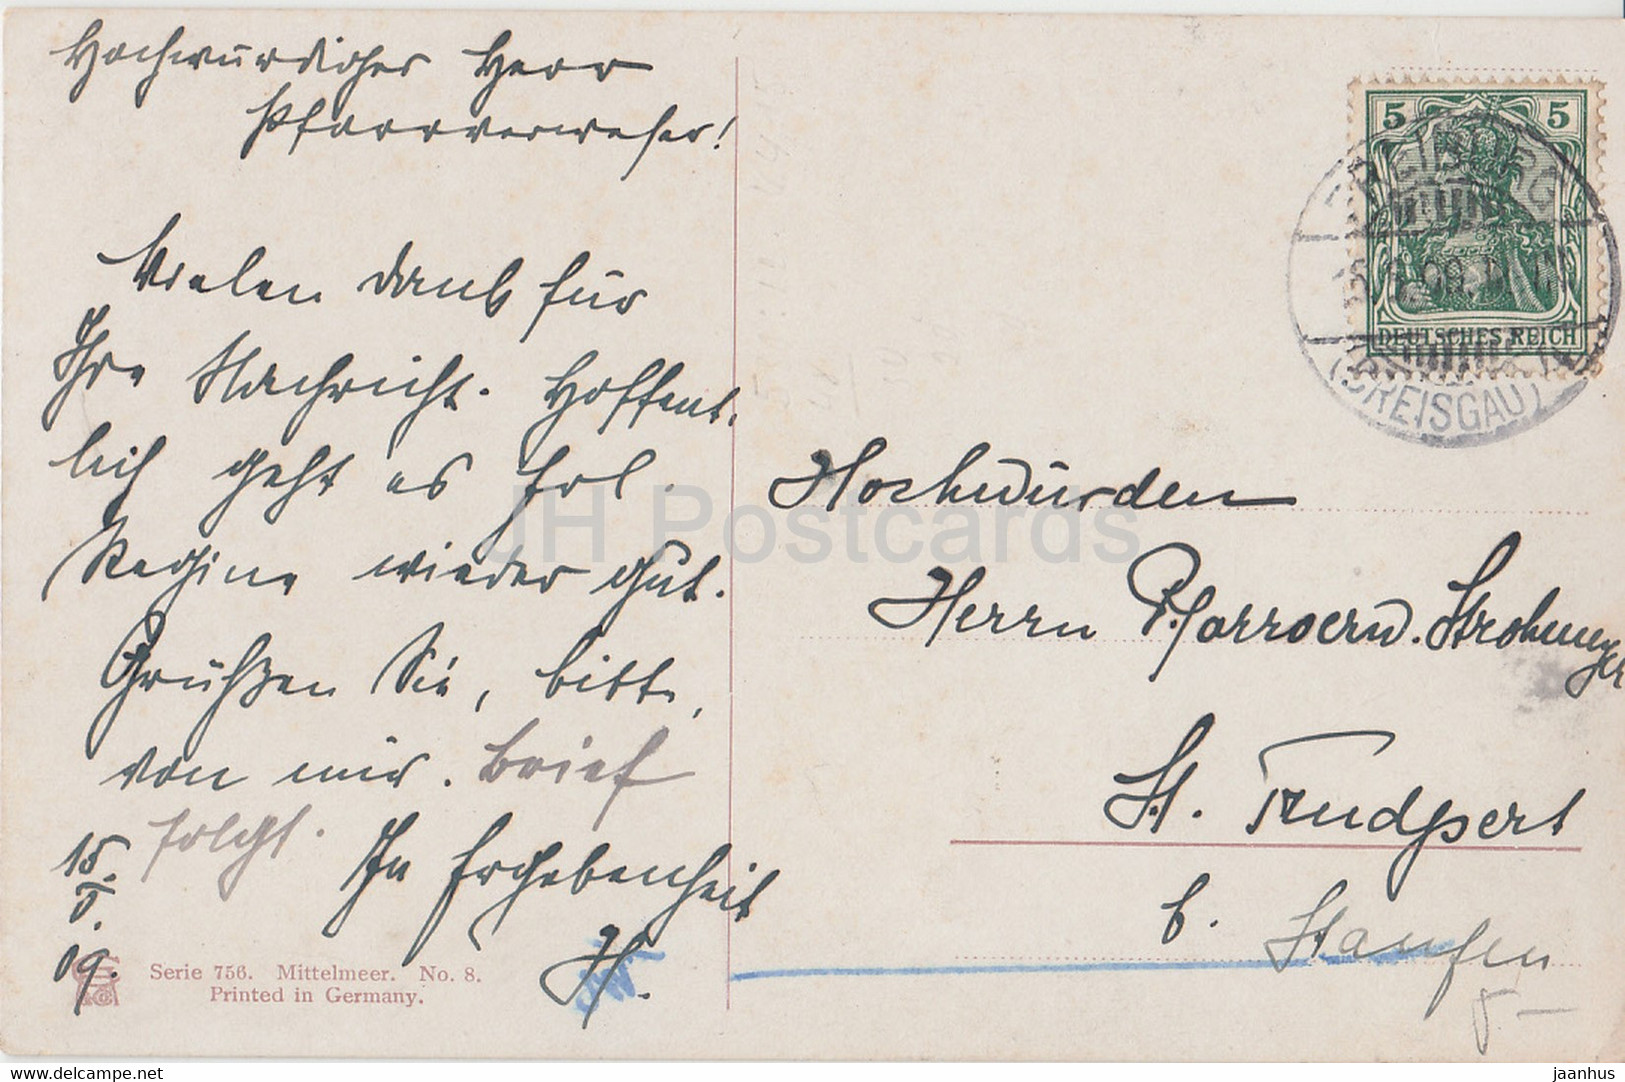 Hochwürdiger Herr
Pfarrverweser!
Vielen Dank für
Ihre Nachricht. Hoffent-
lich geht es Frl.
Regine wieder gut.
Grüßen Sie, bitte,
von mir. Brief
folgt. In Ergebenheit
15.
5.
09.
H.
Serie 756. Mittelmeer. No. 8.
Printed in Germany.
5 5
DEUTSCHES REICH
FREIBURG
(BREISGAU)
Hochwürden
Herrn Pfarrverw. Strohmeyer
St. Trudpert
b. Staufen
JH Postcards
delcampe.net
jaanhus